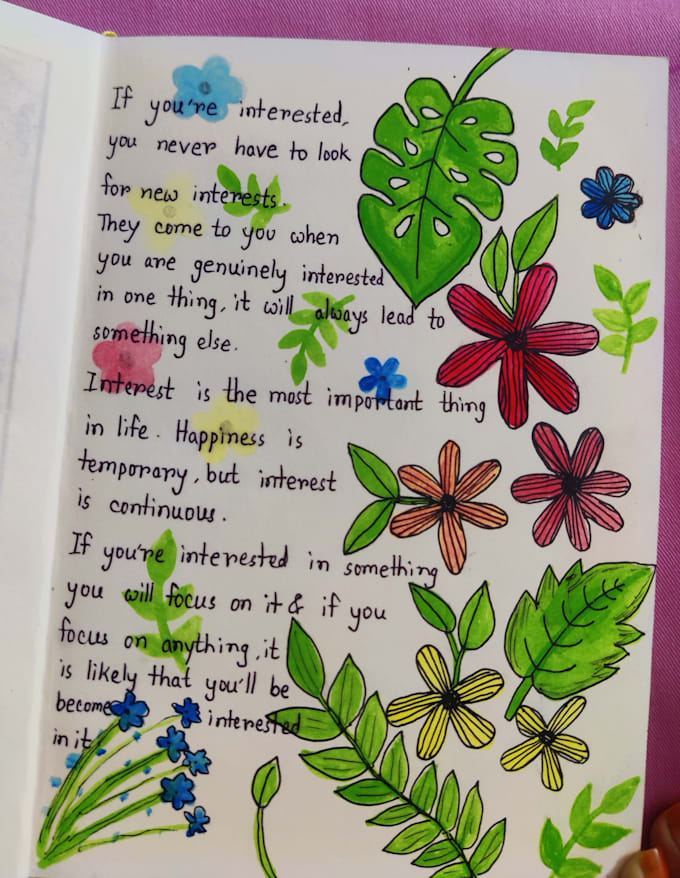 If you're interested,
you never have to look
for new interests.
They come to you when
you are genuinely interested
in one thing, it will always lead to
something else.
Interest is the most important thing
in life. Happiness is
temporary, but interest
is continuous.
If you're interested in something
you will focus on it & if you
focus on anything, it
is likely that you'll be
become interested
in it